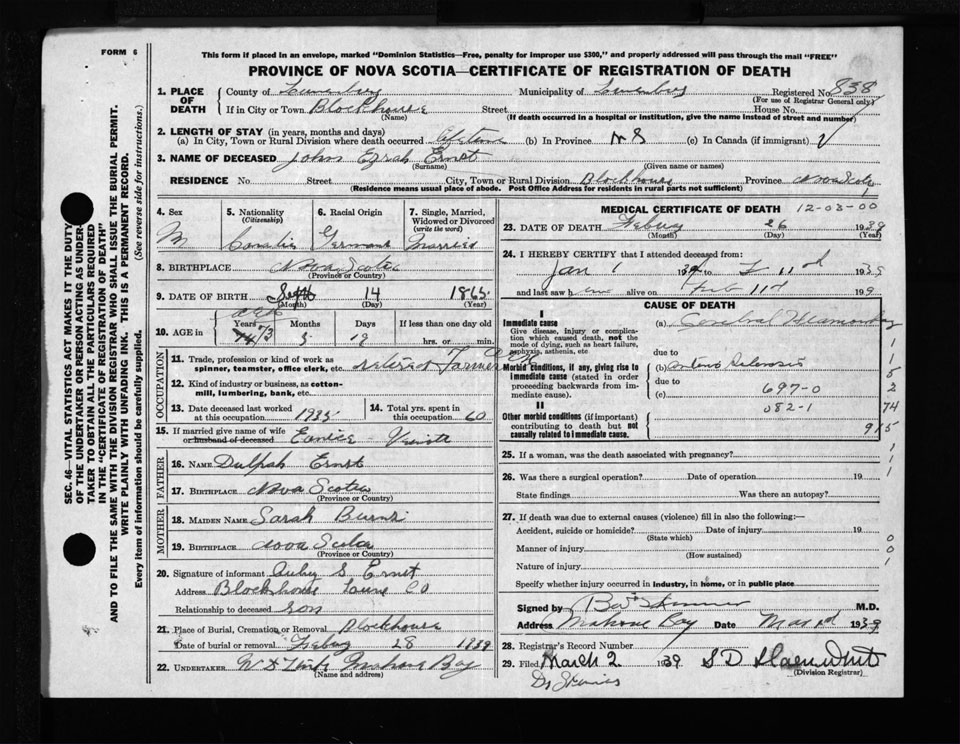 FORM 6
This form if placed in an envelope, marked "Dominion Statistics—Free, penalty for improper use $300," and properly addressed will pass through the mail "FREE"
PROVINCE OF NOVA SCOTIA—CERTIFICATE OF REGISTRATION OF DEATH
SEC. 46 – VITAL STATISTICS ACT MAKES IT THE DUTY
OF THE UNDERTAKER OR PERSON ACTING AS UNDER-
TAKER TO OBTAIN ALL THE PARTICULARS REQUIRED
IN THE "CERTIFICATE OF REGISTRATION OF DEATH"
AND TO FILE THE SAME WITH THE DIVISION REGISTRAR WHO SHALL ISSUE THE BURIAL PERMIT.
WRITE PLAINLY WITH UNFADING INK. THIS IS A PERMANENT RECORD.
Every item of information should be carefully supplied. (See reverse side for instructions.)
1. PLACE OF DEATH
County of Lunenburg Municipality of Lunenburg Registered No. 838
(For use of Registrar General only)
If in City or Town Blockhouse Street House No.
(Name) (If death occurred in a hospital or institution, give the name instead of street and number)
2. LENGTH OF STAY (in years, months and days)
(a) In City, Town or Rural Division where death occurred Lifetime (b) In Province N S (c) In Canada (if immigrant)
3. NAME OF DECEASED John Ezrah Ernst
(Surname) (Given name or names)
RESIDENCE No Street City, Town or Rural Division Blockhouse Province Nova Scotia
(Residence means usual place of abode. Post Office Address for residents in rural parts not sufficient)
4. Sex 5. Nationality (Citizenship) 6. Racial Origin 7. Single, Married, Widowed or Divorced (write the word)
M German Married
8. BIRTHPLACE Nova Scotia
(Province or Country)
9. DATE OF BIRTH Sept 14 1865
(Month) (Day) (Year)
10. AGE in Years Months Days If less than one day old
73 5 12 hrs. or min.
OCCUPATION
11. Trade, profession or kind of work as spinner, teamster, office clerk, etc. retired Farmer
12. Kind of industry or business, as cotton-mill, lumbering, bank, etc.
13. Date deceased last worked at this occupation 1935
14. Total yrs. spent in this occupation 60
15. If married give name of wife or husband of deceased Eunice
FATHER
16. NAME Dulpah Ernst
17. BIRTHPLACE Nova Scotia
(Province or Country)
MOTHER
18. MAIDEN NAME Sarah Burns
19. BIRTHPLACE Nova Scotia
(Province or Country)
20. Signature of informant Auby S Ernst
Address Blockhouse Lune Co
Relationship to deceased son
21. Place of Burial, Cremation or Removal Blockhouse
Date of burial or removal 28 1939
22. UNDERTAKER Mahone Bay
(Name and address)
MEDICAL CERTIFICATE OF DEATH 12-03-00
23. DATE OF DEATH 26 1939
(Month) (Day) (Year)
24. I HEREBY CERTIFY that I attended deceased from:
Jan 1 1939 to 1939
and last saw h im alive on Feb 11 19 9
CAUSE OF DEATH
I
Immediate cause
Give disease, injury or complication which caused death, not the mode of dying, such as heart failure, asphyxia, asthenia, etc
(a) Cerebral
due to
Morbid conditions, if any, giving rise to immediate cause (stated in order proceeding backwards from immediate cause).
(b)
due to
(c) 697-0
082-1
II
Other morbid conditions (if important) contributing to death but not causally related to immediate cause.
1
1
5
2
74
915
25. If a woman, was the death associated with pregnancy?
26. Was there a surgical operation? Date of operation 19
State findings Was there an autopsy?
27. If death was due to external causes (violence) fill in also the following:—
Accident, suicide or homicide? Date of injury 19
(State which)
Manner of injury
(How sustained)
Nature of injury
Specify whether injury occurred in industry, in home, or in public place
0
0
1
Signed by M.D.
Address Mahone Bay Date 1939
28. Registrar's Record Number
29. Filed March 2 1939 S D
(Division Registrar)